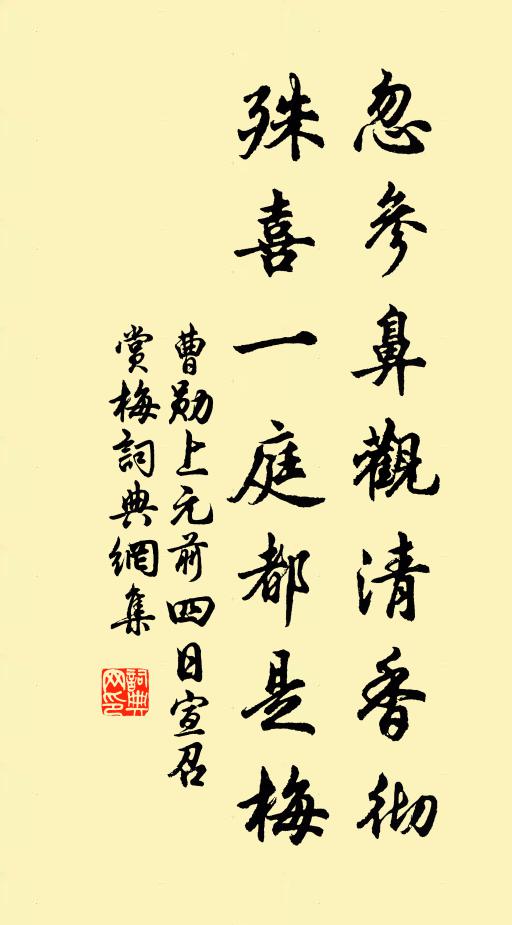 忽參鼻觀清香彻
殊喜一庭都是梅
曹勋上元前四日宣召
赏梅詞典網集
詞典
网印